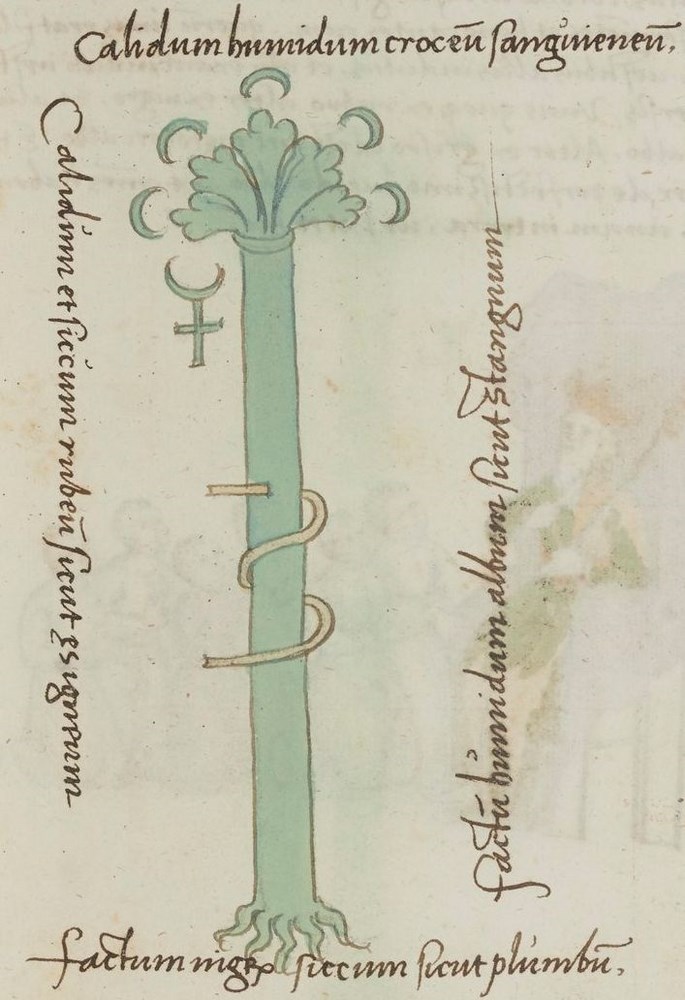 Calidum humidum croceū sanguieneū.
Calidum et siccum rubeū sicut es igneum
factū humidum album sicut stangnum
factum nigrꝝ siccum sicut plumbū.